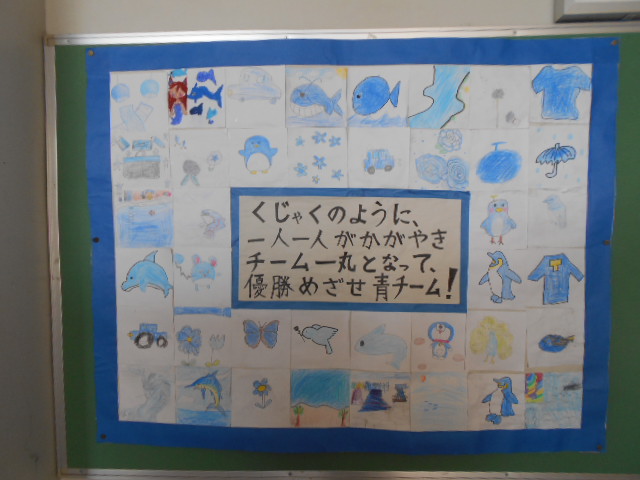 くじゃくのように、
一人一人がかがやき
チーム一丸となって、
優勝めざせ青チーム!
T